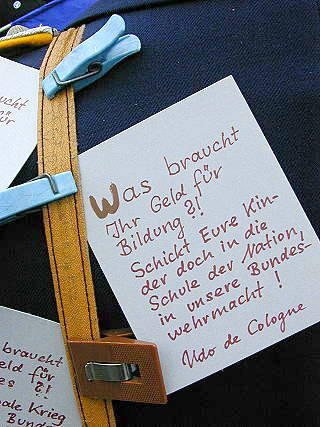 Was braucht
Ihr Geld für
Bildung?!
Schickt Eure Kin-
der doch in die
Schule der Nation,
in unsere Bundes-
wehrmacht!
Udo de Cologne
ucht
für
braucht
eld für
es ?!
ale Krieg
Bund